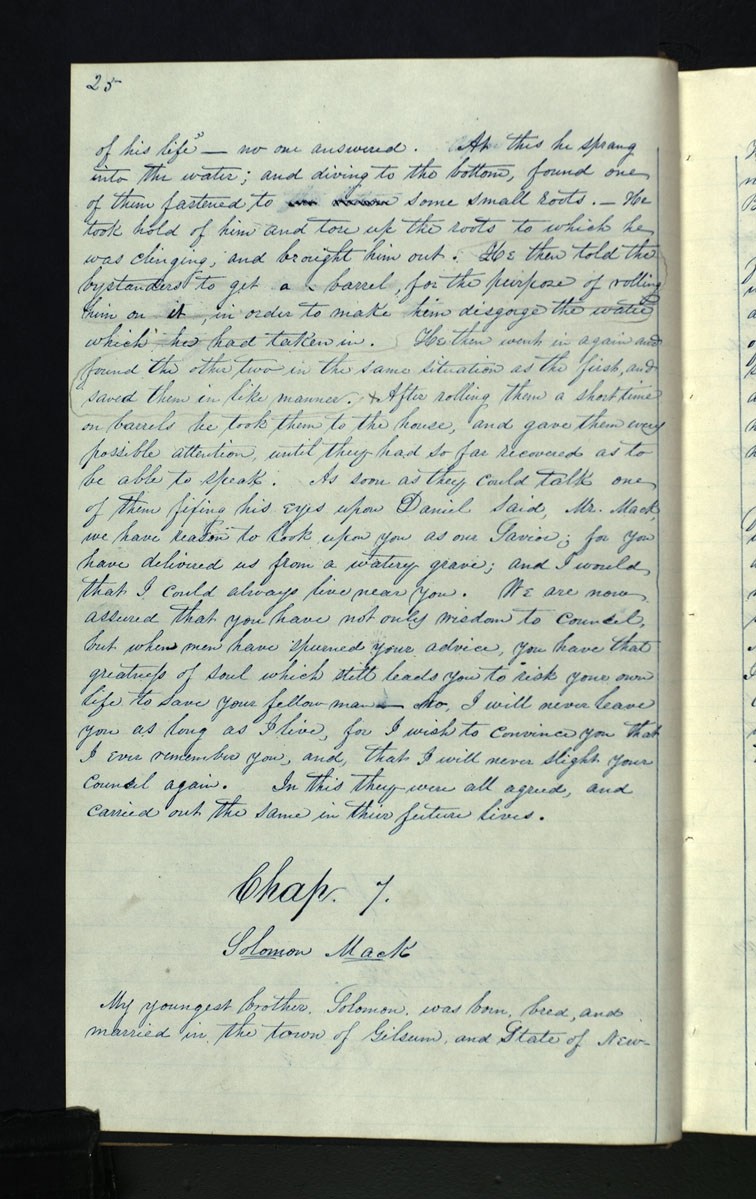 25
of his life" — no one answered. At this he sprang
into the water; and diving to the bottom, found one
of them fastened to some small roots. — He
took hold of him and tore up the roots to which he
was clinging, and brought him out. He then told the
bystanders to get a barrel, for the purpose of rolling
him on it, in order to make him disgorge the water
which he had taken in. He then went in again and
found the other two in the same situation as the first, and
saved them in like manner. x After rolling them a short time
on barrels he took them to the house, and gave them every
possible attention, until they had so far recovered as to
be able to speak. As soon as they could talk one
of them fixing his eyes upon Daniel said, Mr. Mack,
we have reason to look upon you as our Savior; for you
have delivered us from a watery grave; and I would
that I could always live near you. We are now
assured that you have not only wisdom to counsel,
but when men have spurned your advice, you have that
greatness of soul which still leads you to risk your own
life to save your fellow man — No, I will never leave
you as long as I live, for I wish to convince you that
I ever remember you, and, that I will never slight your
counsel again. In this they were all agreed, and
carried out the same in their future lives.
Chap. 7.
Solomon Mack
My youngest brother, Solomon, was born, bred, and
married in, the town of Gilsum, and State of New-